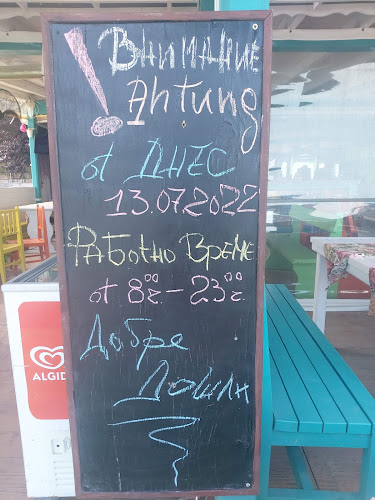 ! Внимание
Ahtung
от ДНЕС
13.07.2022
Работно Време
от 8⁰⁰ч. – 23⁰⁰ч.
Добре
Дошли
ALGID